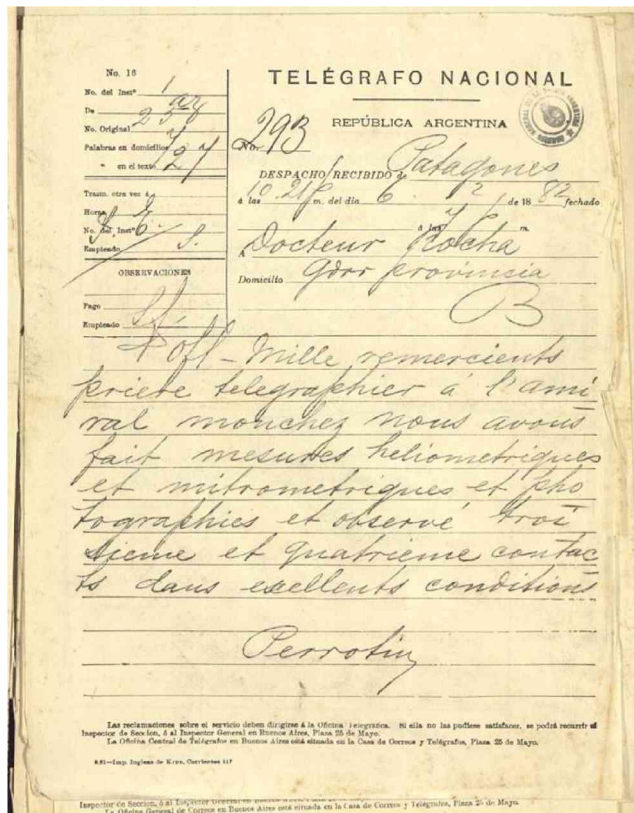 No. 16
No. del Inst° 1
De
No. Original 25
Palabras en domicilios
" en el texto 27
Trasm. otra vez á
Horas
No. del Inst° 6
Empleado S.
OBSERVACIONES
Pago
Empleado
TELÉGRAFO NACIONAL
REPÚBLICA ARGENTINA
No. 293
DESPACHO RECIBIDO de Patagones
á las 10 m. del dia 6 12 de 1882 fechado
á las m.
A Docteur Rocha
Domicilio Gdor provinsia
B
Offl - Mille remercients
priere telegraphier á l'ami
ral mouchez nous avous
fait mesures heliometriques
et mitrometriques et pho
tographies et observé troi
sieme et quatrieme contac
ts daus excellents conditions
Perrotin
Las reclamaciones sobre el servicio deben dirigirse á la Oficina Telegráfica. Si ella no las pudiese satisfacer, se podrá recurrir al
Inspector de Seccion, ó al Inspector General en Buenos Aires, Plaza 25 de Mayo.
La Oficina Central de Telégrafos en Buenos Aires está situada en la Casa de Correos y Telégrafos, Plaza 25 de Mayo.
Imp. Inglesa de Corrientes 117
Inspector de Seccion, ó al Inspector General en Buenos Aires, Plaza 25 de Mayo.
La Oficina General de Correos en Buenos Aires está situada en la Casa de Correos y Telégrafos, Plaza 25 de Mayo.